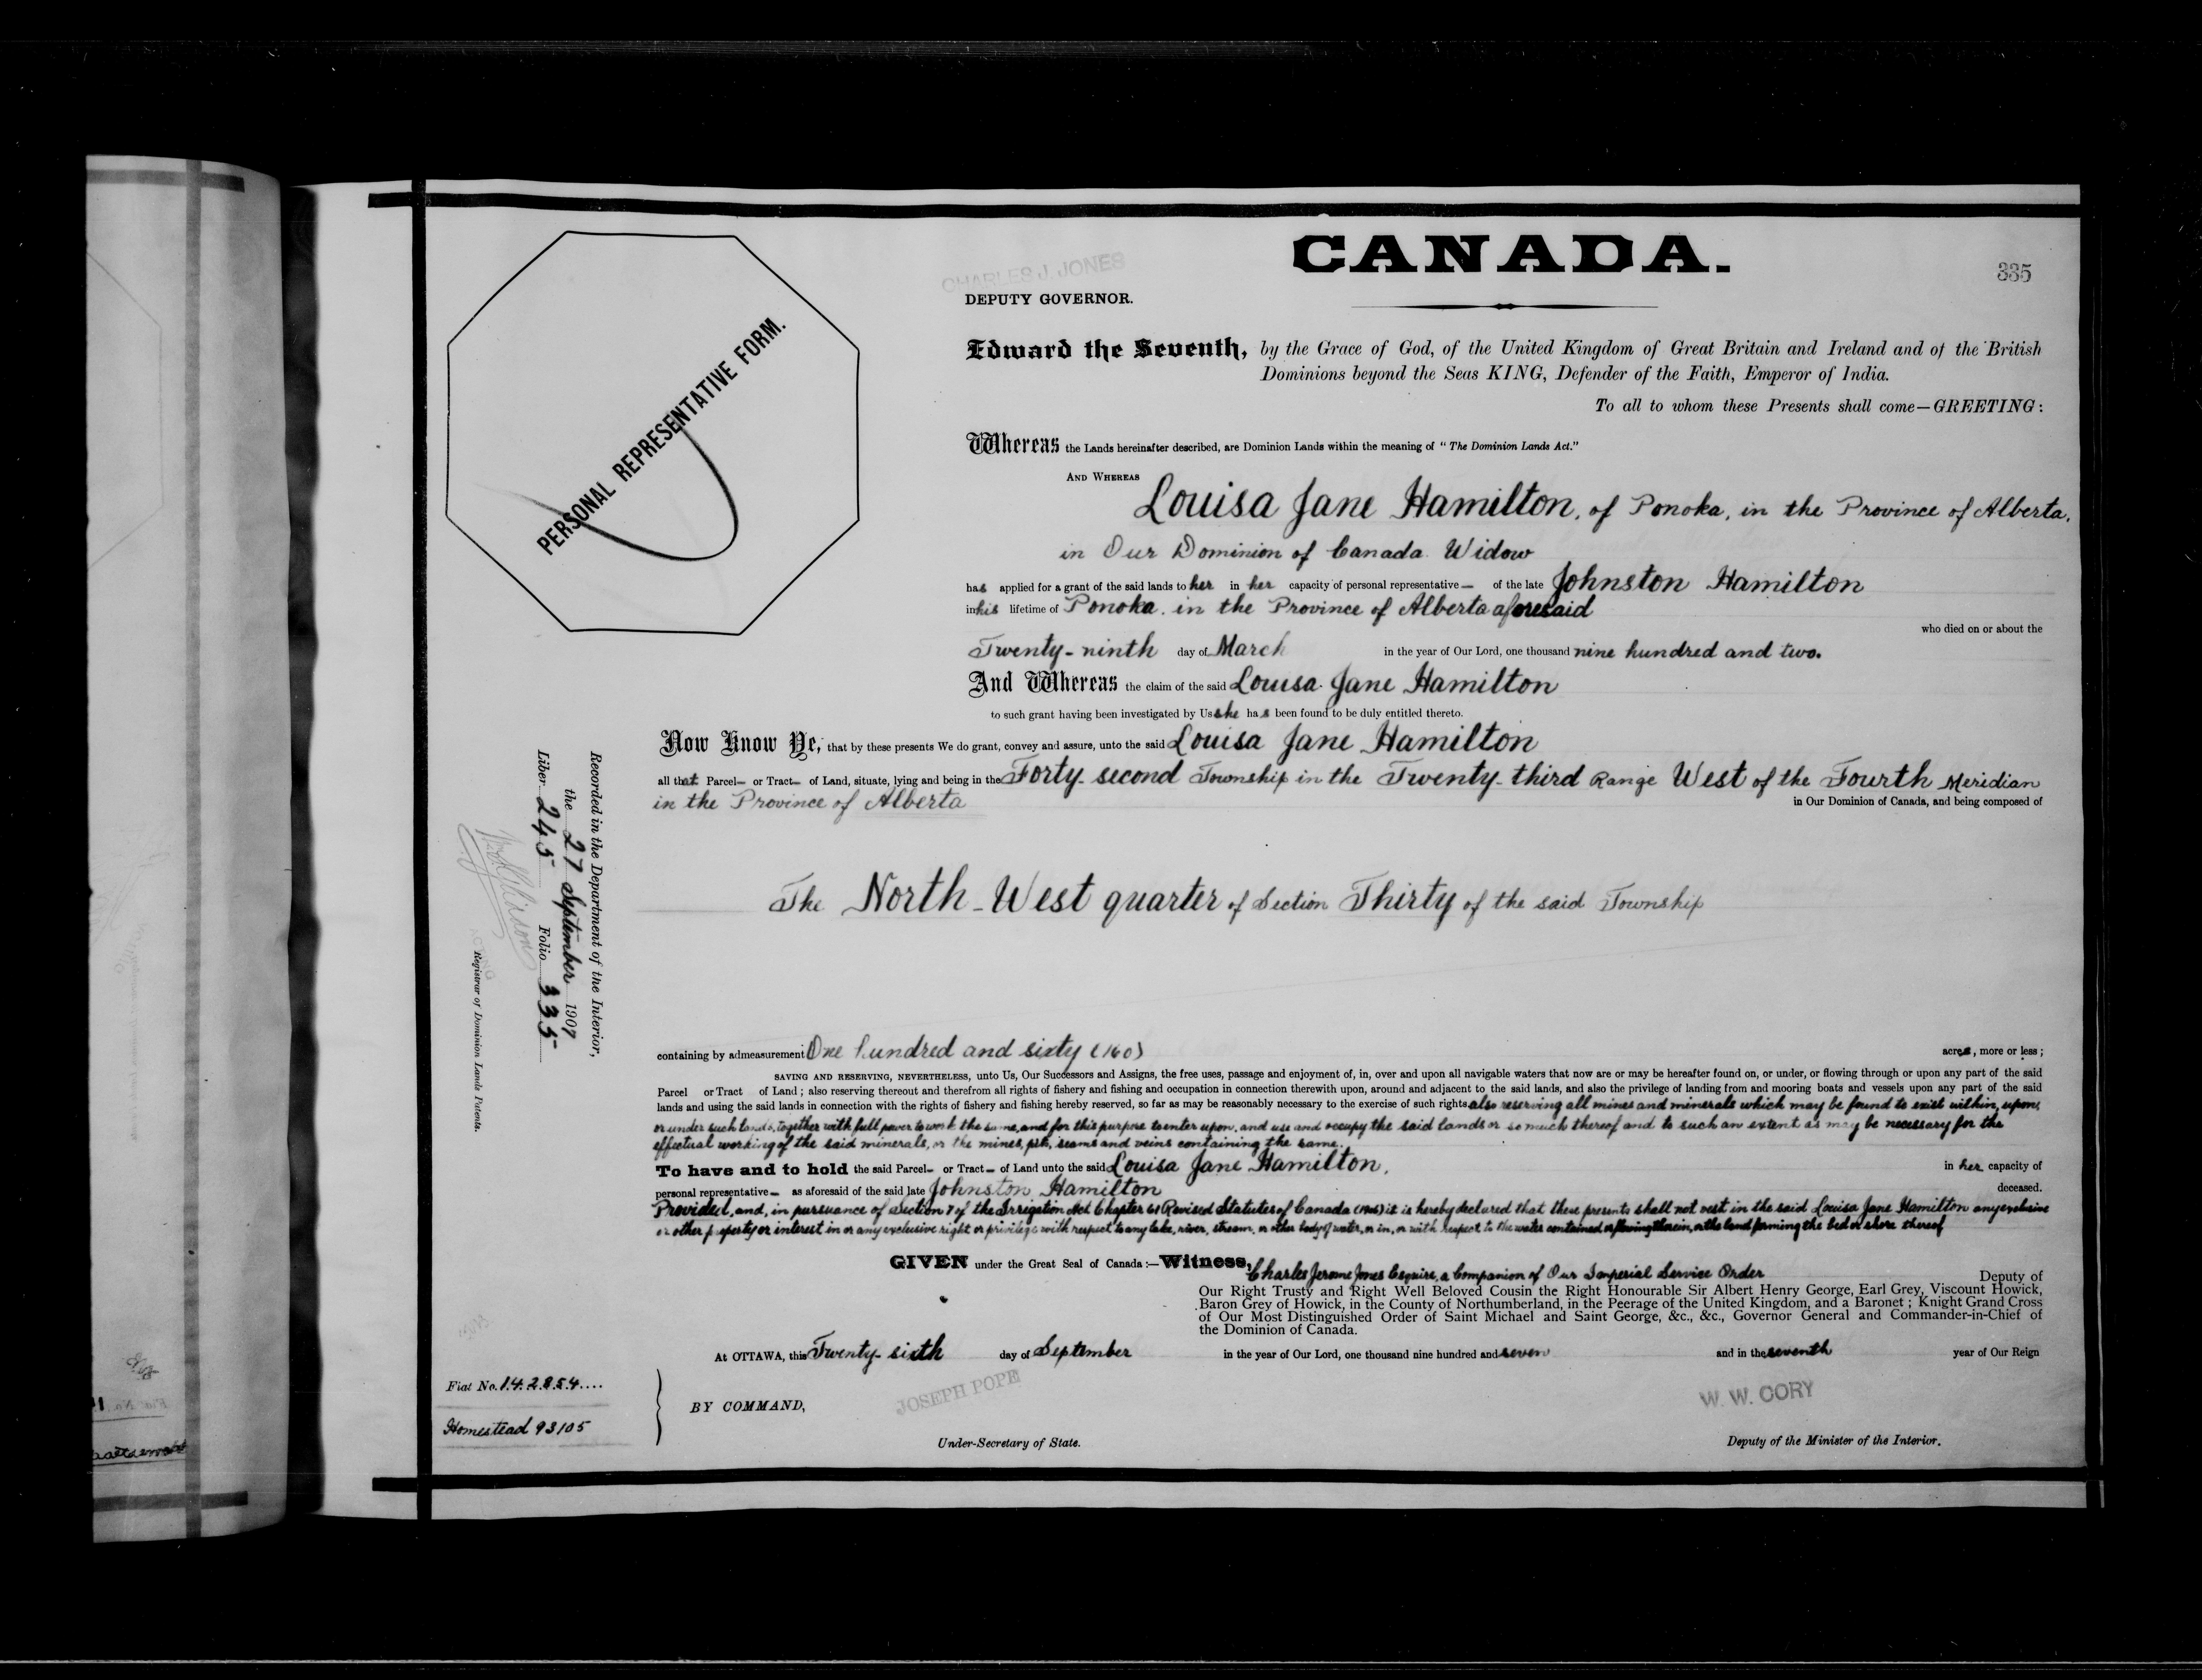 CANADA.
335
CHARLES J. JONES
DEPUTY GOVERNOR.
PERSONAL REPRESENTATIVE FORM.
Edward the Seventh, by the Grace of God, of the United Kingdom of Great Britain and Ireland and of the British
Dominions beyond the Seas KING, Defender of the Faith, Emperor of India.
To all to whom these Presents shall come—GREETING:
Whereas the Lands hereinafter described, are Dominion Lands within the meaning of "The Dominion Lands Act."
AND WHEREAS
Louisa Jane Hamilton, of Ponoka, in the Province of Alberta,
in Our Dominion of Canada. Widow
has applied for a grant of the said lands to her in her capacity of personal representative — of the late Johnston Hamilton
in his lifetime of Ponoka, in the Province of Alberta aforesaid
who died on or about the
Twenty-ninth day of March in the year of Our Lord, one thousand nine hundred and two.
And Whereas the claim of the said Louisa Jane Hamilton
to such grant having been investigated by Us she has been found to be duly entitled thereto.
Now Know Ye, that by these presents We do grant, convey and assure, unto the said Louisa Jane Hamilton
all that Parcel— or Tract— of Land, situate, lying and being in the Forty-second Township in the Twenty-third Range West of the Fourth Meridian
in the Province of Alberta in Our Dominion of Canada, and being composed of
The North-West quarter of Section Thirty of the said Township
containing by admeasurement One hundred and sixty (160) acres, more or less;
SAVING AND RESERVING, NEVERTHELESS, unto Us, Our Successors and Assigns, the free uses, passage and enjoyment of, in, over and upon all navigable waters that now are or may be hereafter found on, or under, or flowing through or upon any part of the said
Parcel or Tract of Land; also reserving thereout and therefrom all rights of fishery and fishing and occupation in connection therewith upon, around and adjacent to the said lands, and also the privilege of landing from and mooring boats and vessels upon any part of the said
lands and using the said lands in connection with the rights of fishery and fishing hereby reserved, so far as may be reasonably necessary to the exercise of such rights also reserving all mines and minerals which may be found to exist within, upon,
or under such lands, together with full power to work the same, and for this purpose to enter upon, and use and occupy the said lands or so much thereof and to such an extent as may be necessary for the
effectual working of the said minerals, or the mines, pits, seams and veins containing the same.
To have and to hold the said Parcel— or Tract— of Land unto the said Louisa Jane Hamilton, in her capacity of
personal representative— as aforesaid of the said late Johnston Hamilton deceased.
Provided, and, in pursuance of Section 7 of the Irrigation Act Chapter 61 Revised Statutes of Canada (1906) it is hereby declared that these presents shall not vest in the said Louisa Jane Hamilton any exclusive
or other property or interest in or any exclusive right or privilege with respect to any lake, river, stream, or other body of water, or in, or with respect to the water contained or flowing therein, or the land forming the bed or shore thereof
GIVEN under the Great Seal of Canada:—Witness, Charles Jerome Jones Esquire, a Companion of Our Imperial Service Order Deputy of
Our Right Trusty and Right Well Beloved Cousin the Right Honourable Sir Albert Henry George, Earl Grey, Viscount Howick,
Baron Grey of Howick, in the County of Northumberland, in the Peerage of the United Kingdom, and a Baronet; Knight Grand Cross
of Our Most Distinguished Order of Saint Michael and Saint George, &c., &c., Governor General and Commander-in-Chief of
the Dominion of Canada.
At OTTAWA, this Twenty-sixth day of September in the year of Our Lord, one thousand nine hundred and seven and in the seventh year of Our Reign
BY COMMAND,
JOSEPH POPE
Under-Secretary of State.
W. W. CORY
Deputy of the Minister of the Interior.
Fiat No. 142854....
Homestead 93105
Recorded in the Department of the Interior,
the 27 September 1907
Liber 245 Folio 335
Registrar of Dominion Lands Patents.